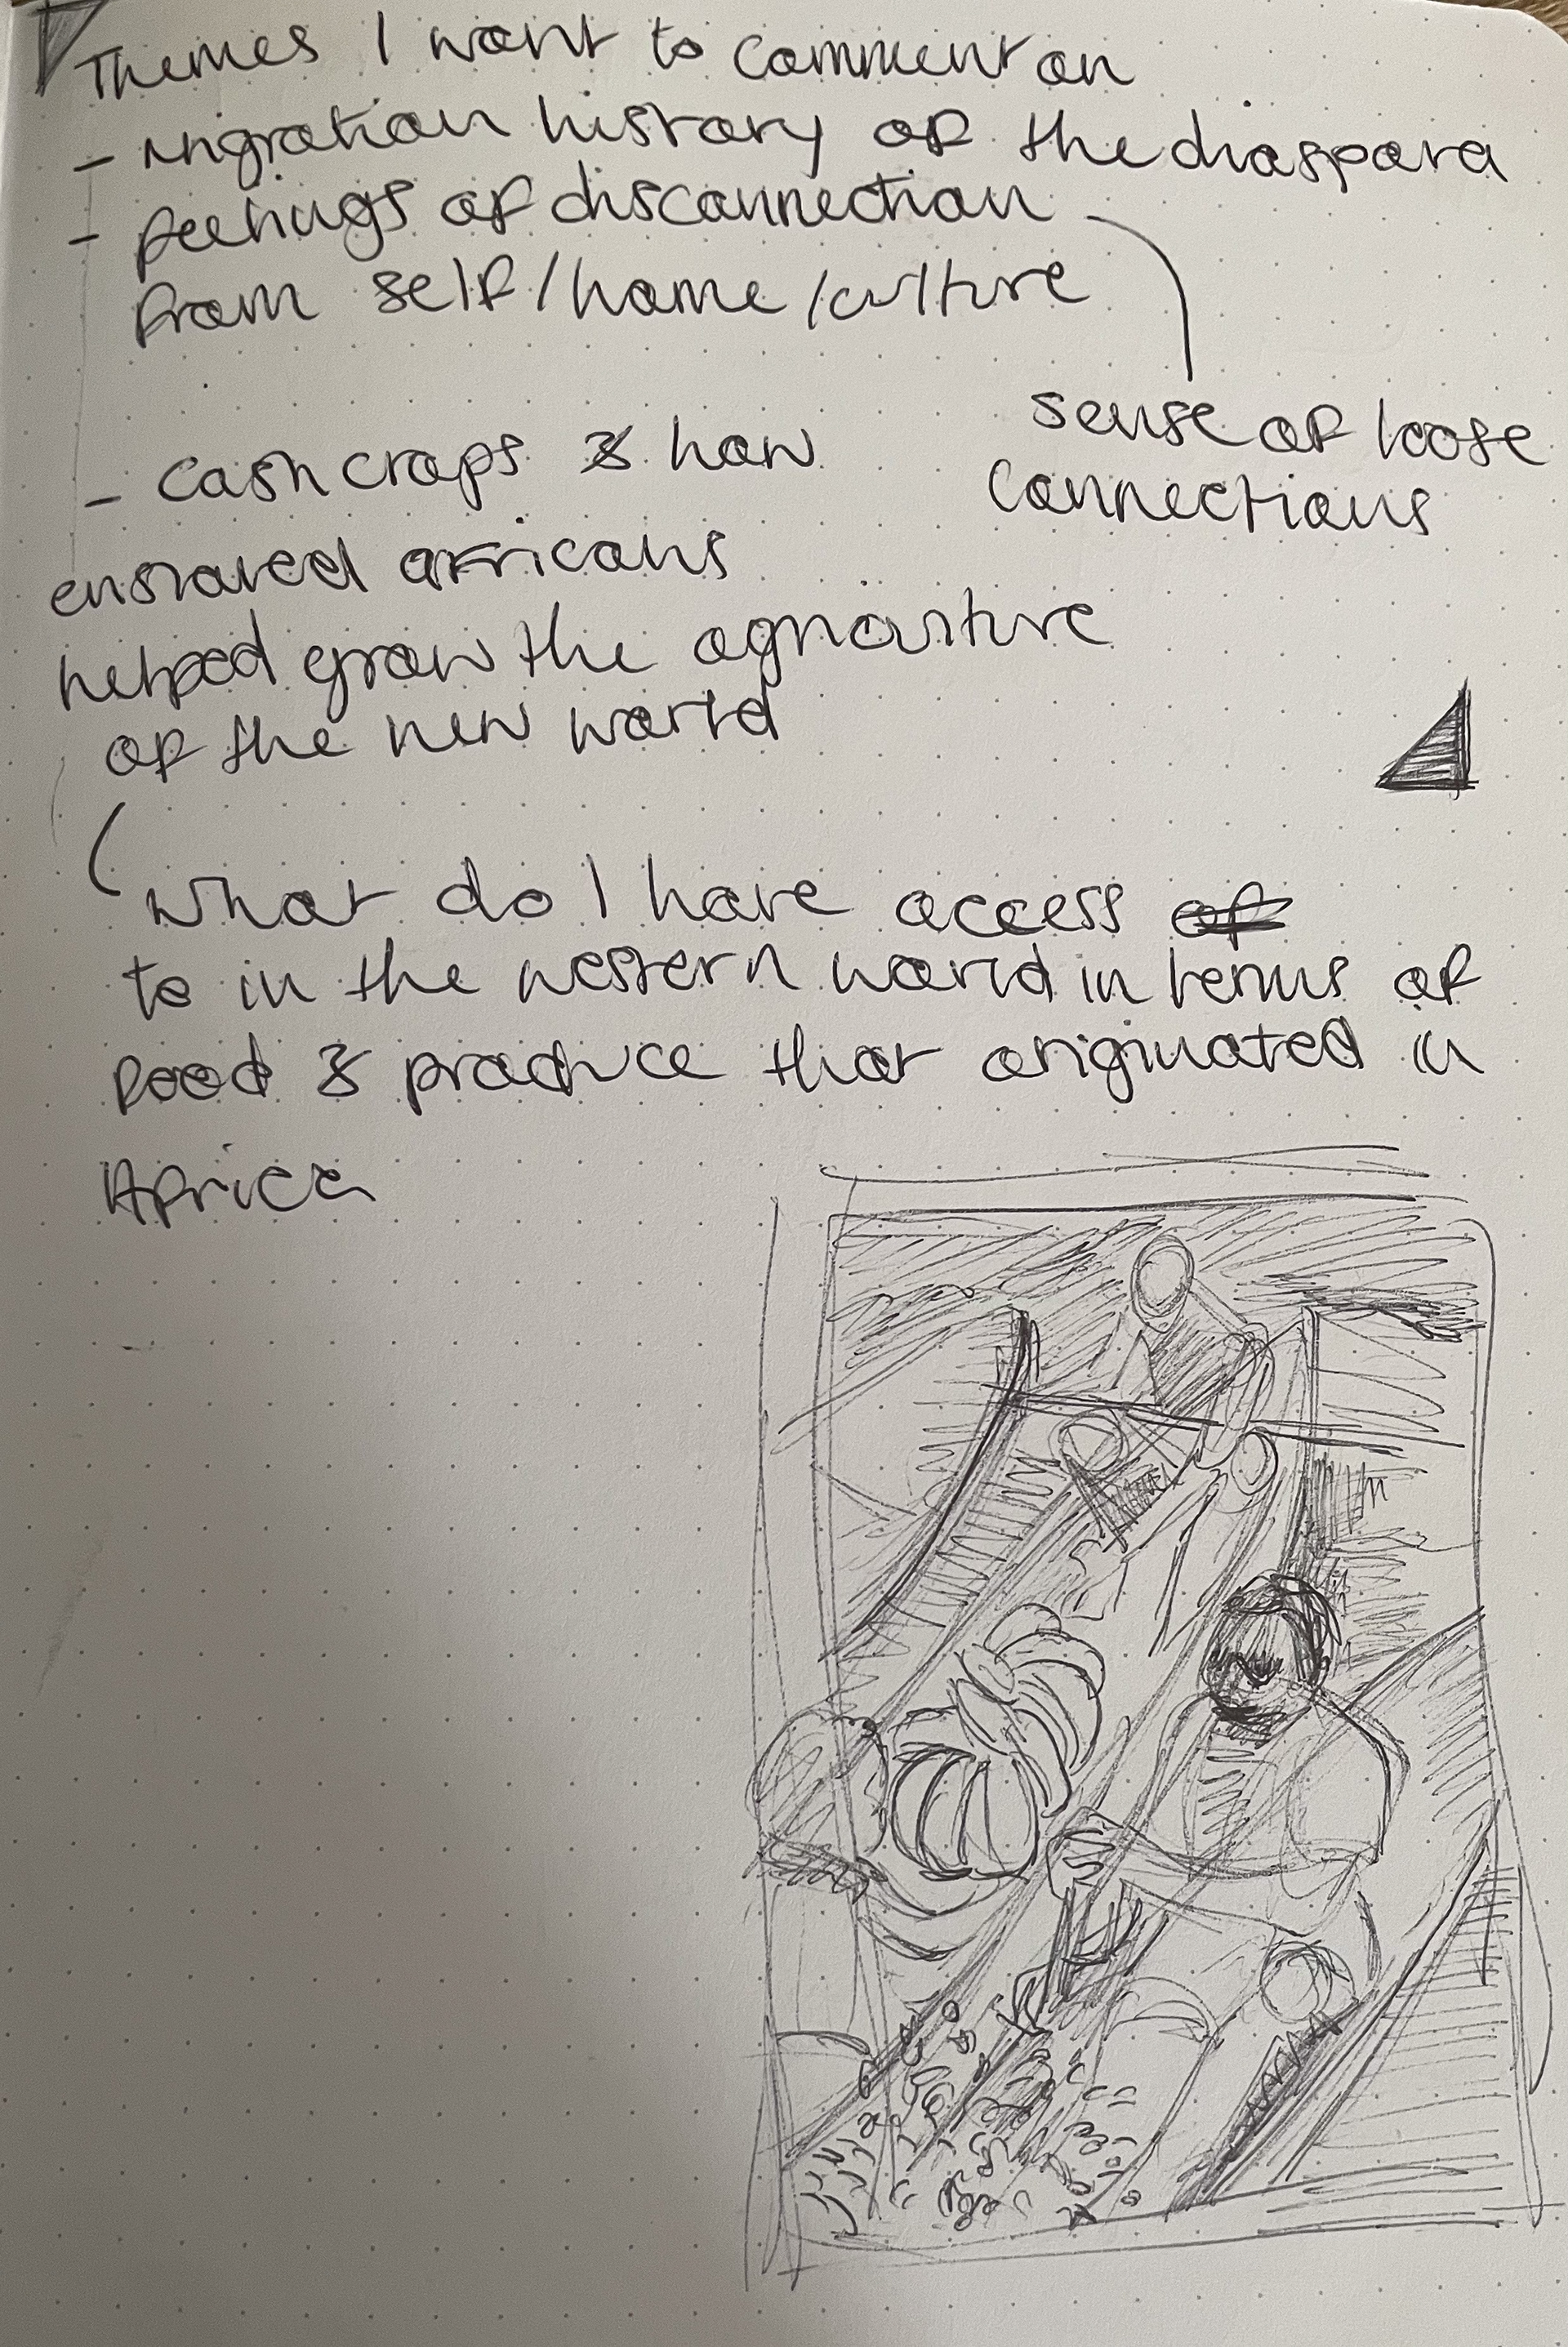 Themes I want to comment on
- migration history of the diaspora
- feelings of disconnection
from self/home/culture
sense of loose
connections
- cash crops & how
enslaved africans
helped grow the agriculture
of the new world
what do I have access of
to in the western world in terms of
food & produce that originated in
Africa